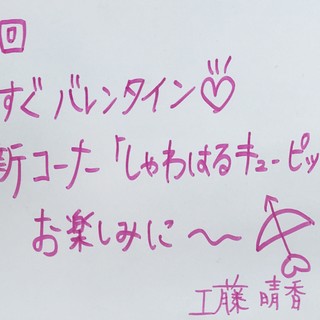 回
すぐバレンタイン♡
新コーナー「しゃわはるキューピッ
お楽しみに〜
工藤晴香